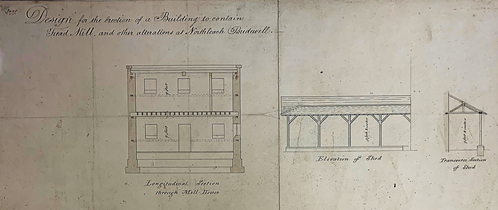 Design for the Erection of a Building to contain
Tread Mill, and other alterations at Northleach Bridewell.
Longitudinal Section
through Mill House
Elevation of Shed
Transverse Section
of Shed